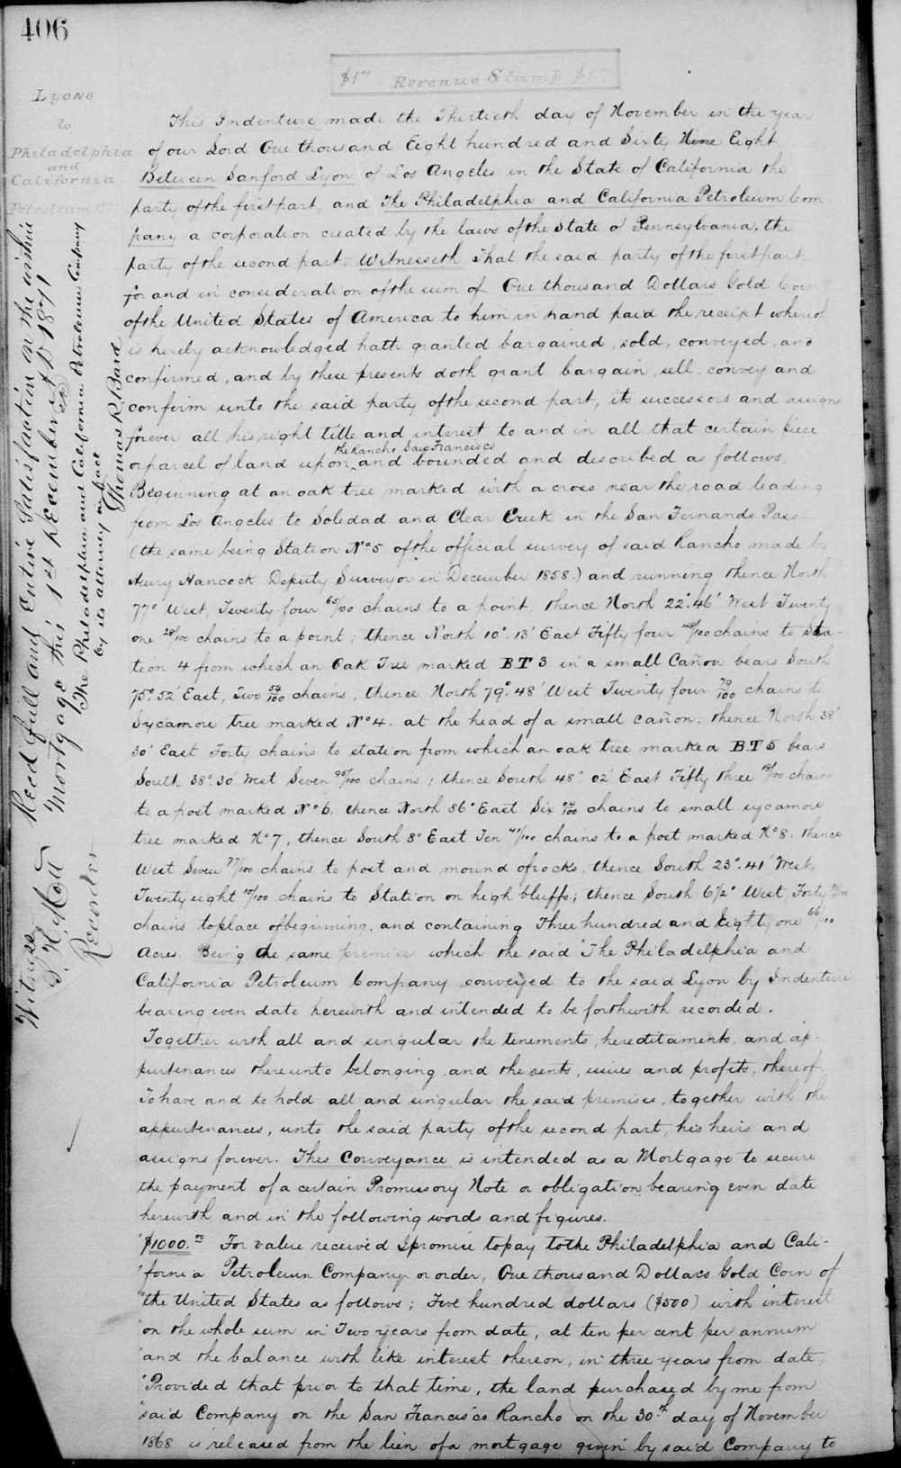 406
$1 00 Revenue Stamp $1 00
Lyons
to
Philadelphia
and
California
Petroleum Co
This Indenture made the Thirtieth day of November in the year
of our Lord One thousand Eight hundred and Sixty Nine Eight
Between Sanford Lyon of Los Angeles in the State of California the
party of the first part, and The Philadelphia and California Petroleum Com
pany a corporation created by the laws of the State of Pennsylvania, the
party of the second part. Witnesseth That the said party of the first part
for and in consideration of the sum of One thousand Dollars Gold Coin
of the United States of America to him in hand paid the receipt whereof
is hereby acknowledged hath granted bargained, sold, conveyed, and
confirmed, and by these presents doth grant bargain, sell, convey and
confirm unto the said party of the second part, its successors and assigns
forever all his right title and interest to and in all that certain piece
the Rancho San Francisco
or parcel of land upon and bounded and described as follows.
Beginning at an oak tree marked with a cross near the road leading
from Los Angeles to Soledad and Clear Creek in the San Fernando Pass
(the same being Station No 5 of the official survey of said Rancho made by
Henry Hancock Deputy Surveyor in December 1858.) and running thence North
77° West, Twenty four 65/100 chains to a point, thence North 22°.46' West Twenty
one 28/100 chains to a point; thence North 10°. 13' East Fifty four chains to Sta-
tion 4 from which an Oak Tree marked B T 3 in a small Cañon bears South
75°.52' East, Two 59/100 chains, thence North 79°.48' West Twenty four 79/100 chains to
Sycamore tree marked No 4. at the head of a small cañon; thence North 38°
30' East Forty chains to station from which an oak tree marked B.T 5 bears
South 38°.30' West Seven 90/100 chains; thence South 48° 02' East Fifty three chains
to a post marked No 6, thence North 86° East Six chains to small sycamore
tree marked No 7, thence South 8° East Ten chains to a post marked No 8. thence
West Seven 77/100 chains to post and mound of rocks, thence South 23°.41' West,
Twenty eight chains to Station on high bluffs; thence South 6½° West Forty
chains to place of beginning, and containing Three hundred and Eighty one 66/100
Acres. Being the same premises which the said "The Philadelphia and
California Petroleum Company conveyed to the said Lyon by Indenture
bearing even date herewith and intended to be forthwith recorded.
Together with all and singular the tenements, hereditaments, and ap-
purtenances thereunto belonging, and the rents, issues and profits, thereof.
To have and to hold all and singular the said premises, together with the
appurtenances, unto the said party of the second part, his heirs and
assigns forever. This Conveyance is intended as a Mortgage to secure
the payment of a certain Promissory Note or obligation bearing even date
herewith and in the following words and figures.
"$1000.00 For value received I promise to pay to the Philadelphia and Cali-
"fornia Petroleum Company or order, One thousand Dollars Gold Coin of
"the United States as follows; Five hundred dollars ($500) with interest
"on the whole sum in Two years from date, at ten per cent per annum
"and the balance with like interest thereon, in three years from date,
"Provided that prior to that time, the land purchased by me from
"said Company on the San Francisco Rancho on the 30th day of November
1868 is released from the lien of a mortgage given by said Company to
Recd full and Entire Satisfaction on the within
Mortgage this 1st December A.D. 1871
The Philadelphia and California Petroleum Company
by its attorney in fact
Thomas R. Bard
Witness
Recorder